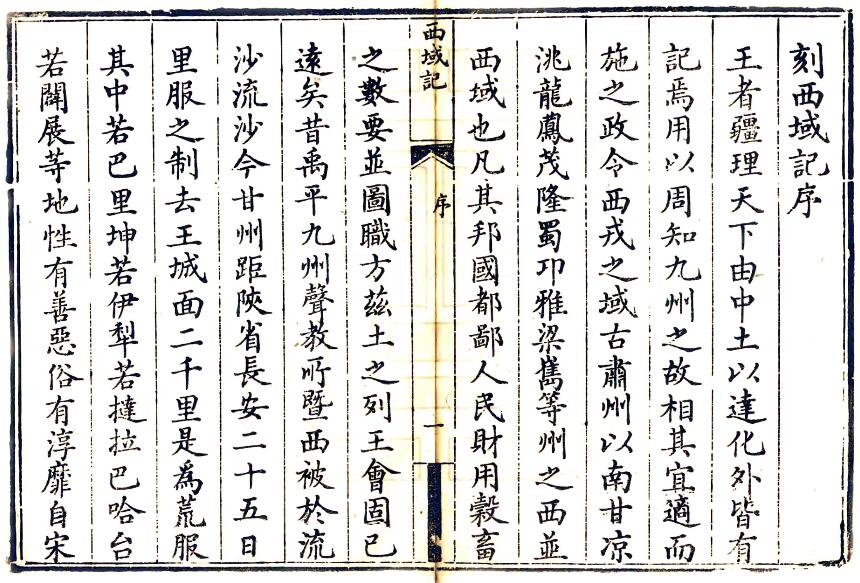 刻西域記序
王者疆理天下由中土以達化外皆有
記焉用以周知九州之故相其宜適而
施之政令西戎之域古肅州以南甘凉
洮龍鳳茂隆蜀邛雅梁嶲等州之西並
西域也凡其邦國都鄙人民財用穀畜
西域記
序
一
之數要並圖職方茲土之列王會固已
遠矣昔禹平九州聲教所暨西被於流
沙流沙今甘州距陜省長安二十五日
里服之制去王城面二千里是為荒服
其中若巴里坤若伊犁若撻拉巴哈台
若闢展等地性有善惡俗有淳靡自宋